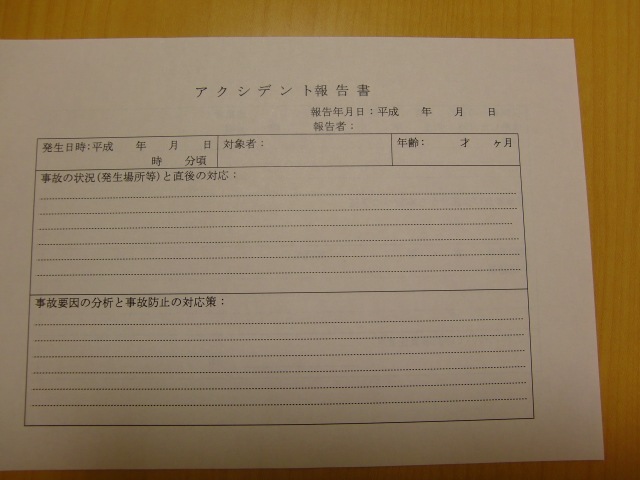 アクシデント報告書
報告年月日：平成　　年　　月　　日
報告者：
発生日時：平成　　年　　月　　日　対象者：　年齢：　　才　　ヶ月
時　　分頃
事故の状況（発生場所等）と直後の対応：
事故要因の分析と事故防止の対応策：